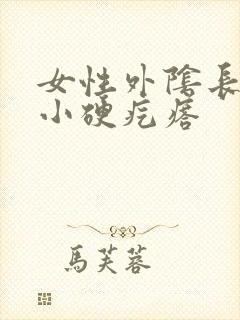 女性外陰長
小硬疙瘩
馬芙蓉